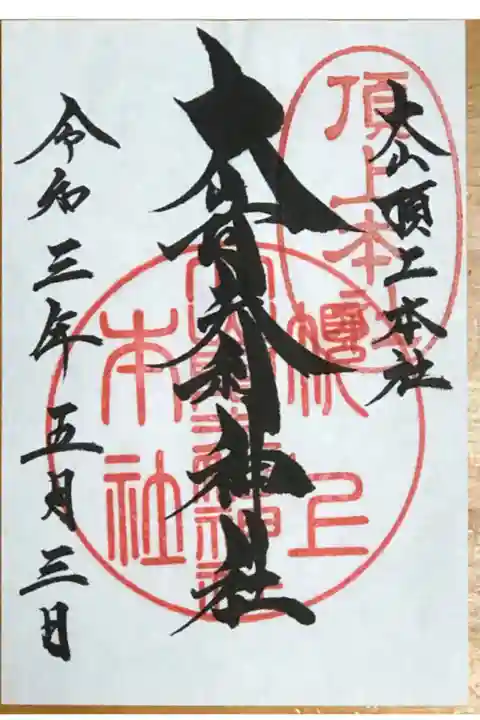 大山頂上本社
大山阿夫利神社
令和三年五月三日
頂上本社
上
本社